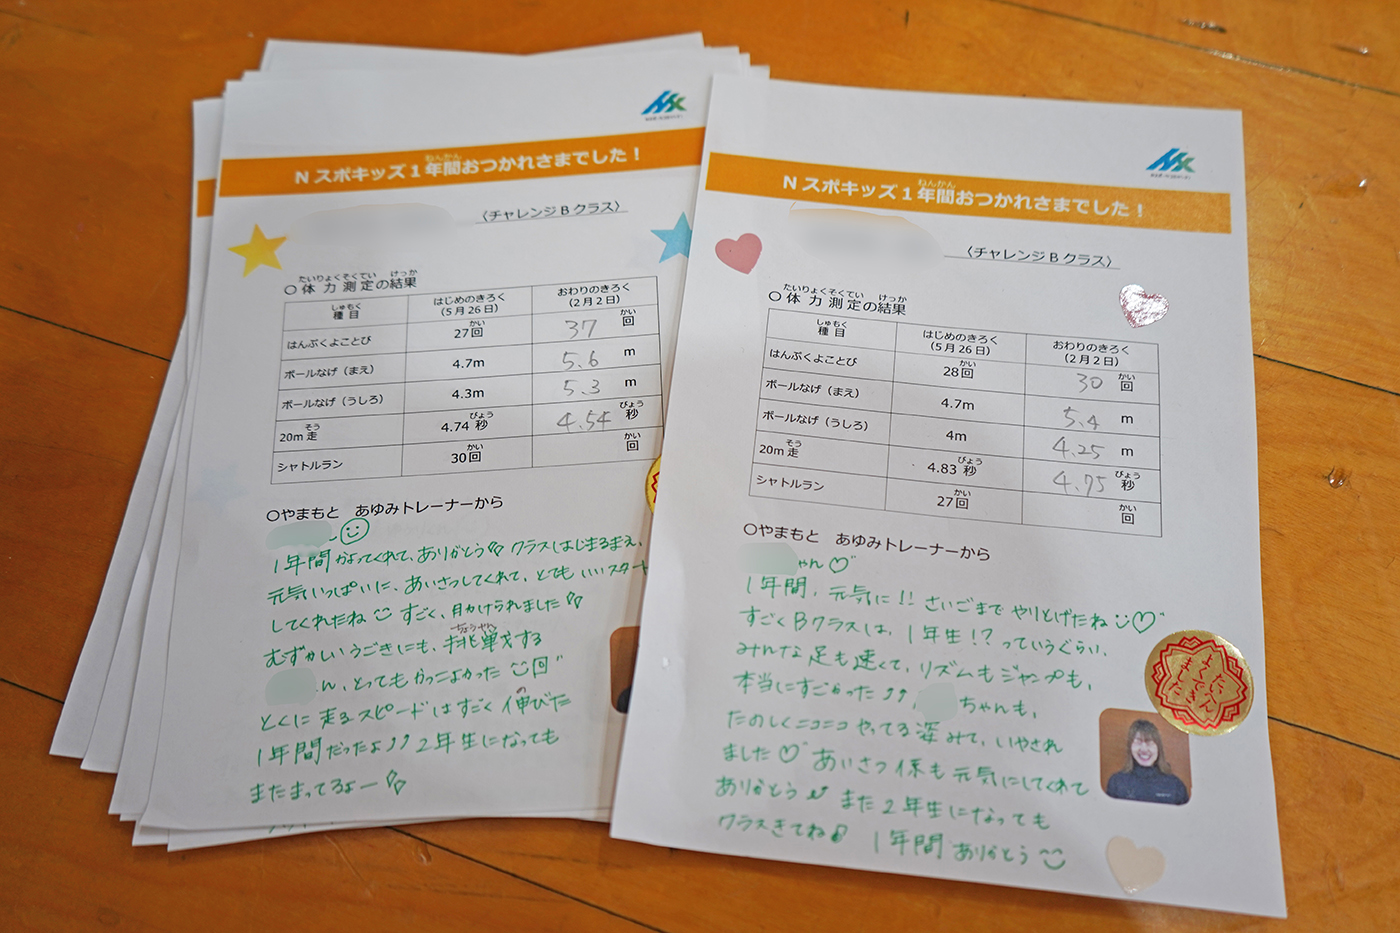 Nスポキッズ１年間おつかれさまでした！
ねんかん
〈チャレンジBクラス〉
たいりょくそくてい けっか
〇体力測定の結果
しゅもく
種目 はじめのきろく おわりのきろく
(5月26日) (2月2日)
はんぷくよことび 27回 37 回
かい かい
ボールなげ（まえ） 4.7m 5.6 m
ボールなげ（うしろ） 4.3m 5.3 m
そう びょう びょう
20m走 4.74秒 4.54 秒
かい かい
シャトルラン 30回 回
〇やまもと　あゆみトレーナーから
ん
1年間かよってくれて、ありがとう クラスはじまるまえ、
元気いっぱいに、あいさつしてくれて、とてもいいスタート
してくれたね すごく、助けられました
ちょうせん
むずかしいうごきにも、挑戦する
ん、とってもかっこよかった
とくに走るスピードはすごく伸びた
の
1年間だったよ♪♪ 2年生になっても
またまってるよー
Nスポキッズ１年間おつかれさまでした！
ねんかん
〈チャレンジBクラス〉
たいりょくそくてい けっか
〇体力測定の結果
しゅもく
種目 はじめのきろく おわりのきろく
(5月26日) (2月2日)
かい かい
はんぷくよことび 28回 30 回
ボールなげ（まえ） 4.7m 5.4 m
ボールなげ（うしろ） 4m 4.25 m
そう びょう びょう
20m走 4.83秒 4.75 秒
かい かい
シャトルラン 27回 回
〇やまもと　あゆみトレーナーから
ゃん♡
1年間、元気に!! さいごまでやりとげたね♡
すごくBクラスは、1年生!?っていうぐらい、
みんな足も速くて、リズムもジャンプも、
本当にすごかった♪♪, ちゃんも、
たのしくニコニコやってる姿みて、いやされ
ました♡ あいさつ係も元気にしてくれて
ありがとう♪ また2年生になっても
クラスきてね♪ 1年間ありがとう
たいへん
よくでき
ました